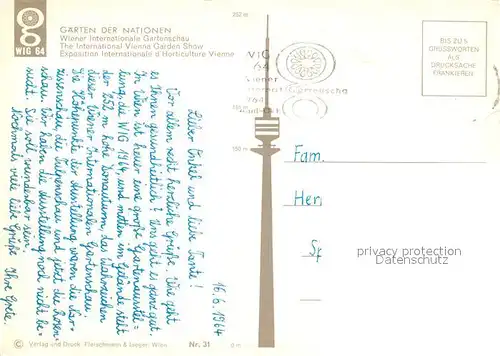 WIG 64
GARTEN DER NATIONEN
Wiener Internationale Gartenschau
The International Vienna Garden Show
Exposition Internationale d'Horticulture Vienne
252 m
150 m
0 m
WIG
64
Wiener
BIS ZU 5
GRUSSWORTEN
ALS
DRUCKSACHE
FRANKIEREN
16.6.1964
Lieber Onkel und liebe Tante!
Vor allem recht herzliche Grüße. Wie geht
es Ihnen gesundheitlich? Uns geht es ganz gut.
In Wien ist heuer eine große Gartenausstel=
lung, die WIG 1964, und mitten im Gelände steht
der 252 m hohe Donauturm, das Wahrzeichen
dieser Wiener Internationalen Gartenschau.
Die Höhepunkte der Ausstellung waren die Nar=
zissenschau, die Tulpenschau und jetzt die Rosen=
schau. Wir haben die Ausstellung noch nicht be=
sucht. Sie soll wunderbar sein.
Nochmals viele liebe Grüße Ihre Grete.
Fam.
Her
privacy protection
Datenschutz
© Verlag und Druck: Fleischmann & Wien
Nr. 31